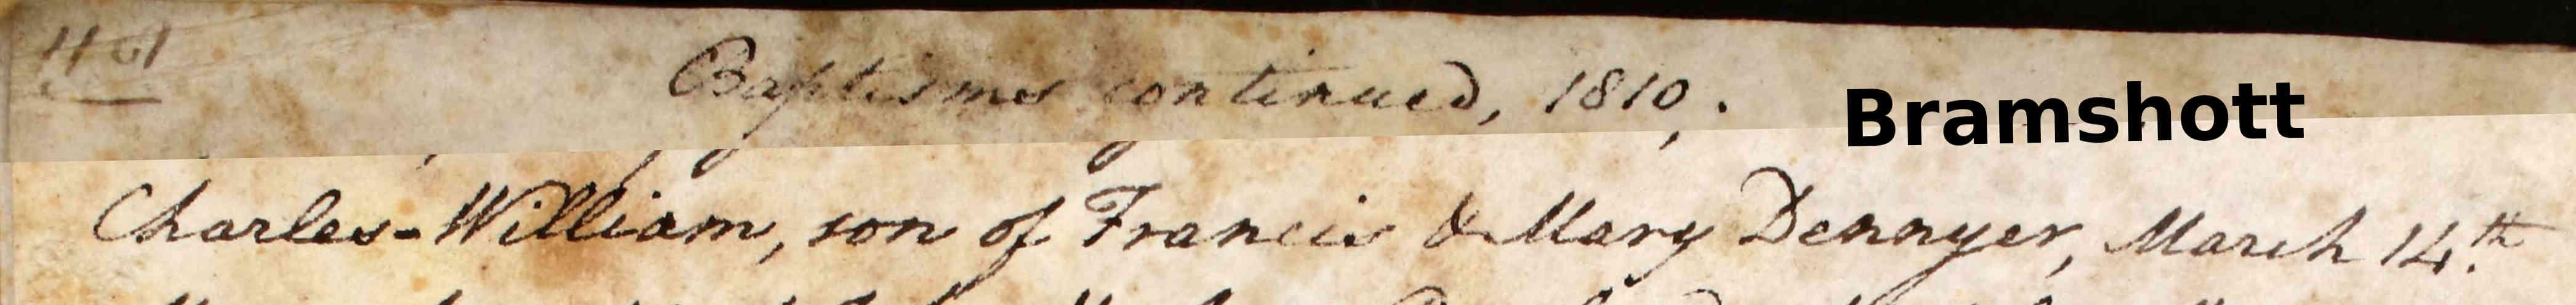 Baptisms continued, 1810,.
Bramshott
Charles-William, son of Francis & Mary Dennyer, March 14.th